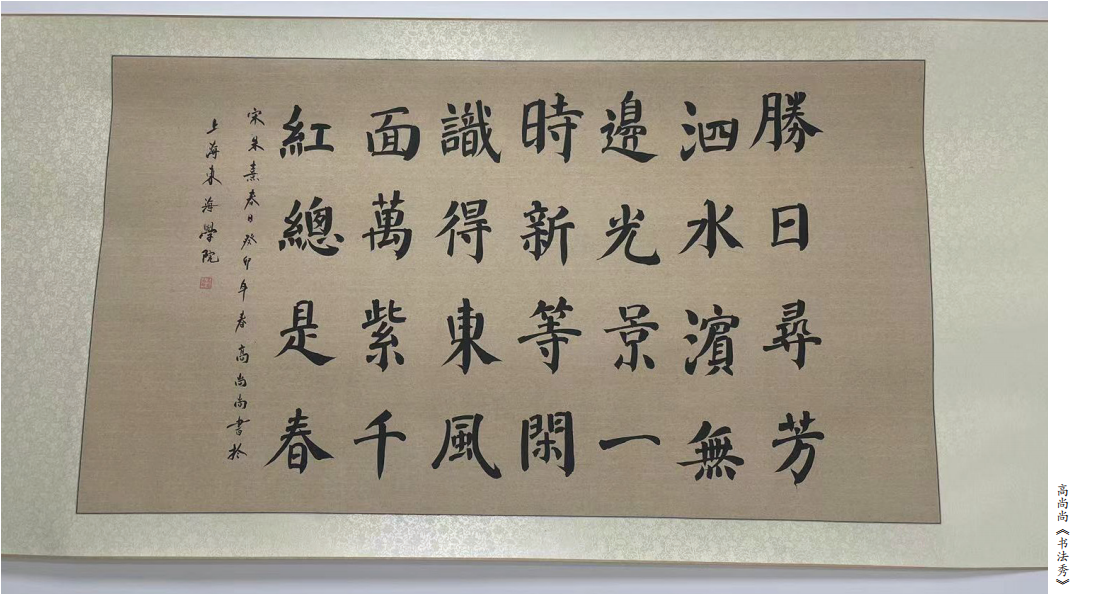 勝日尋芳
泗水濱無
邊光景一
時新等閑
識得東風
面萬紫千
紅總是春
宋朱熹春日癸卯年春高尚尚書於
上海東海學院
高尚尚《书法秀》